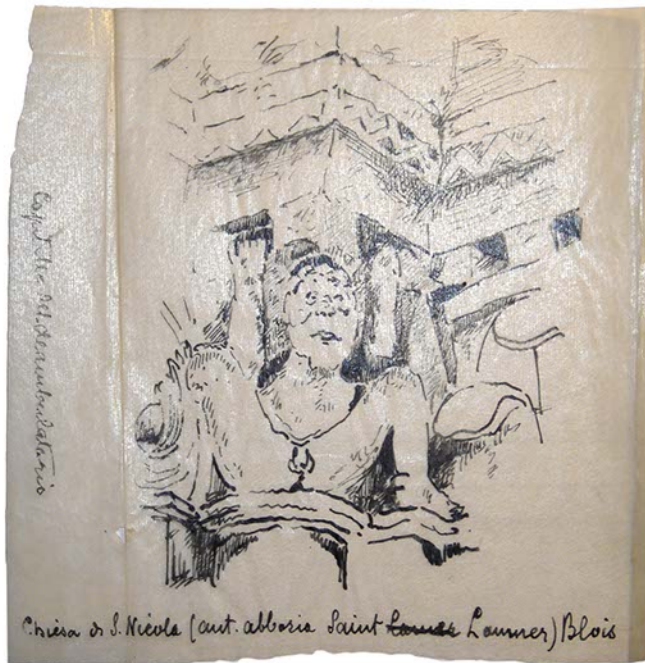 Capitello del deambulatorio
Chiesa di S. Nicola (ant. abbazia Saint Laumer) Blois